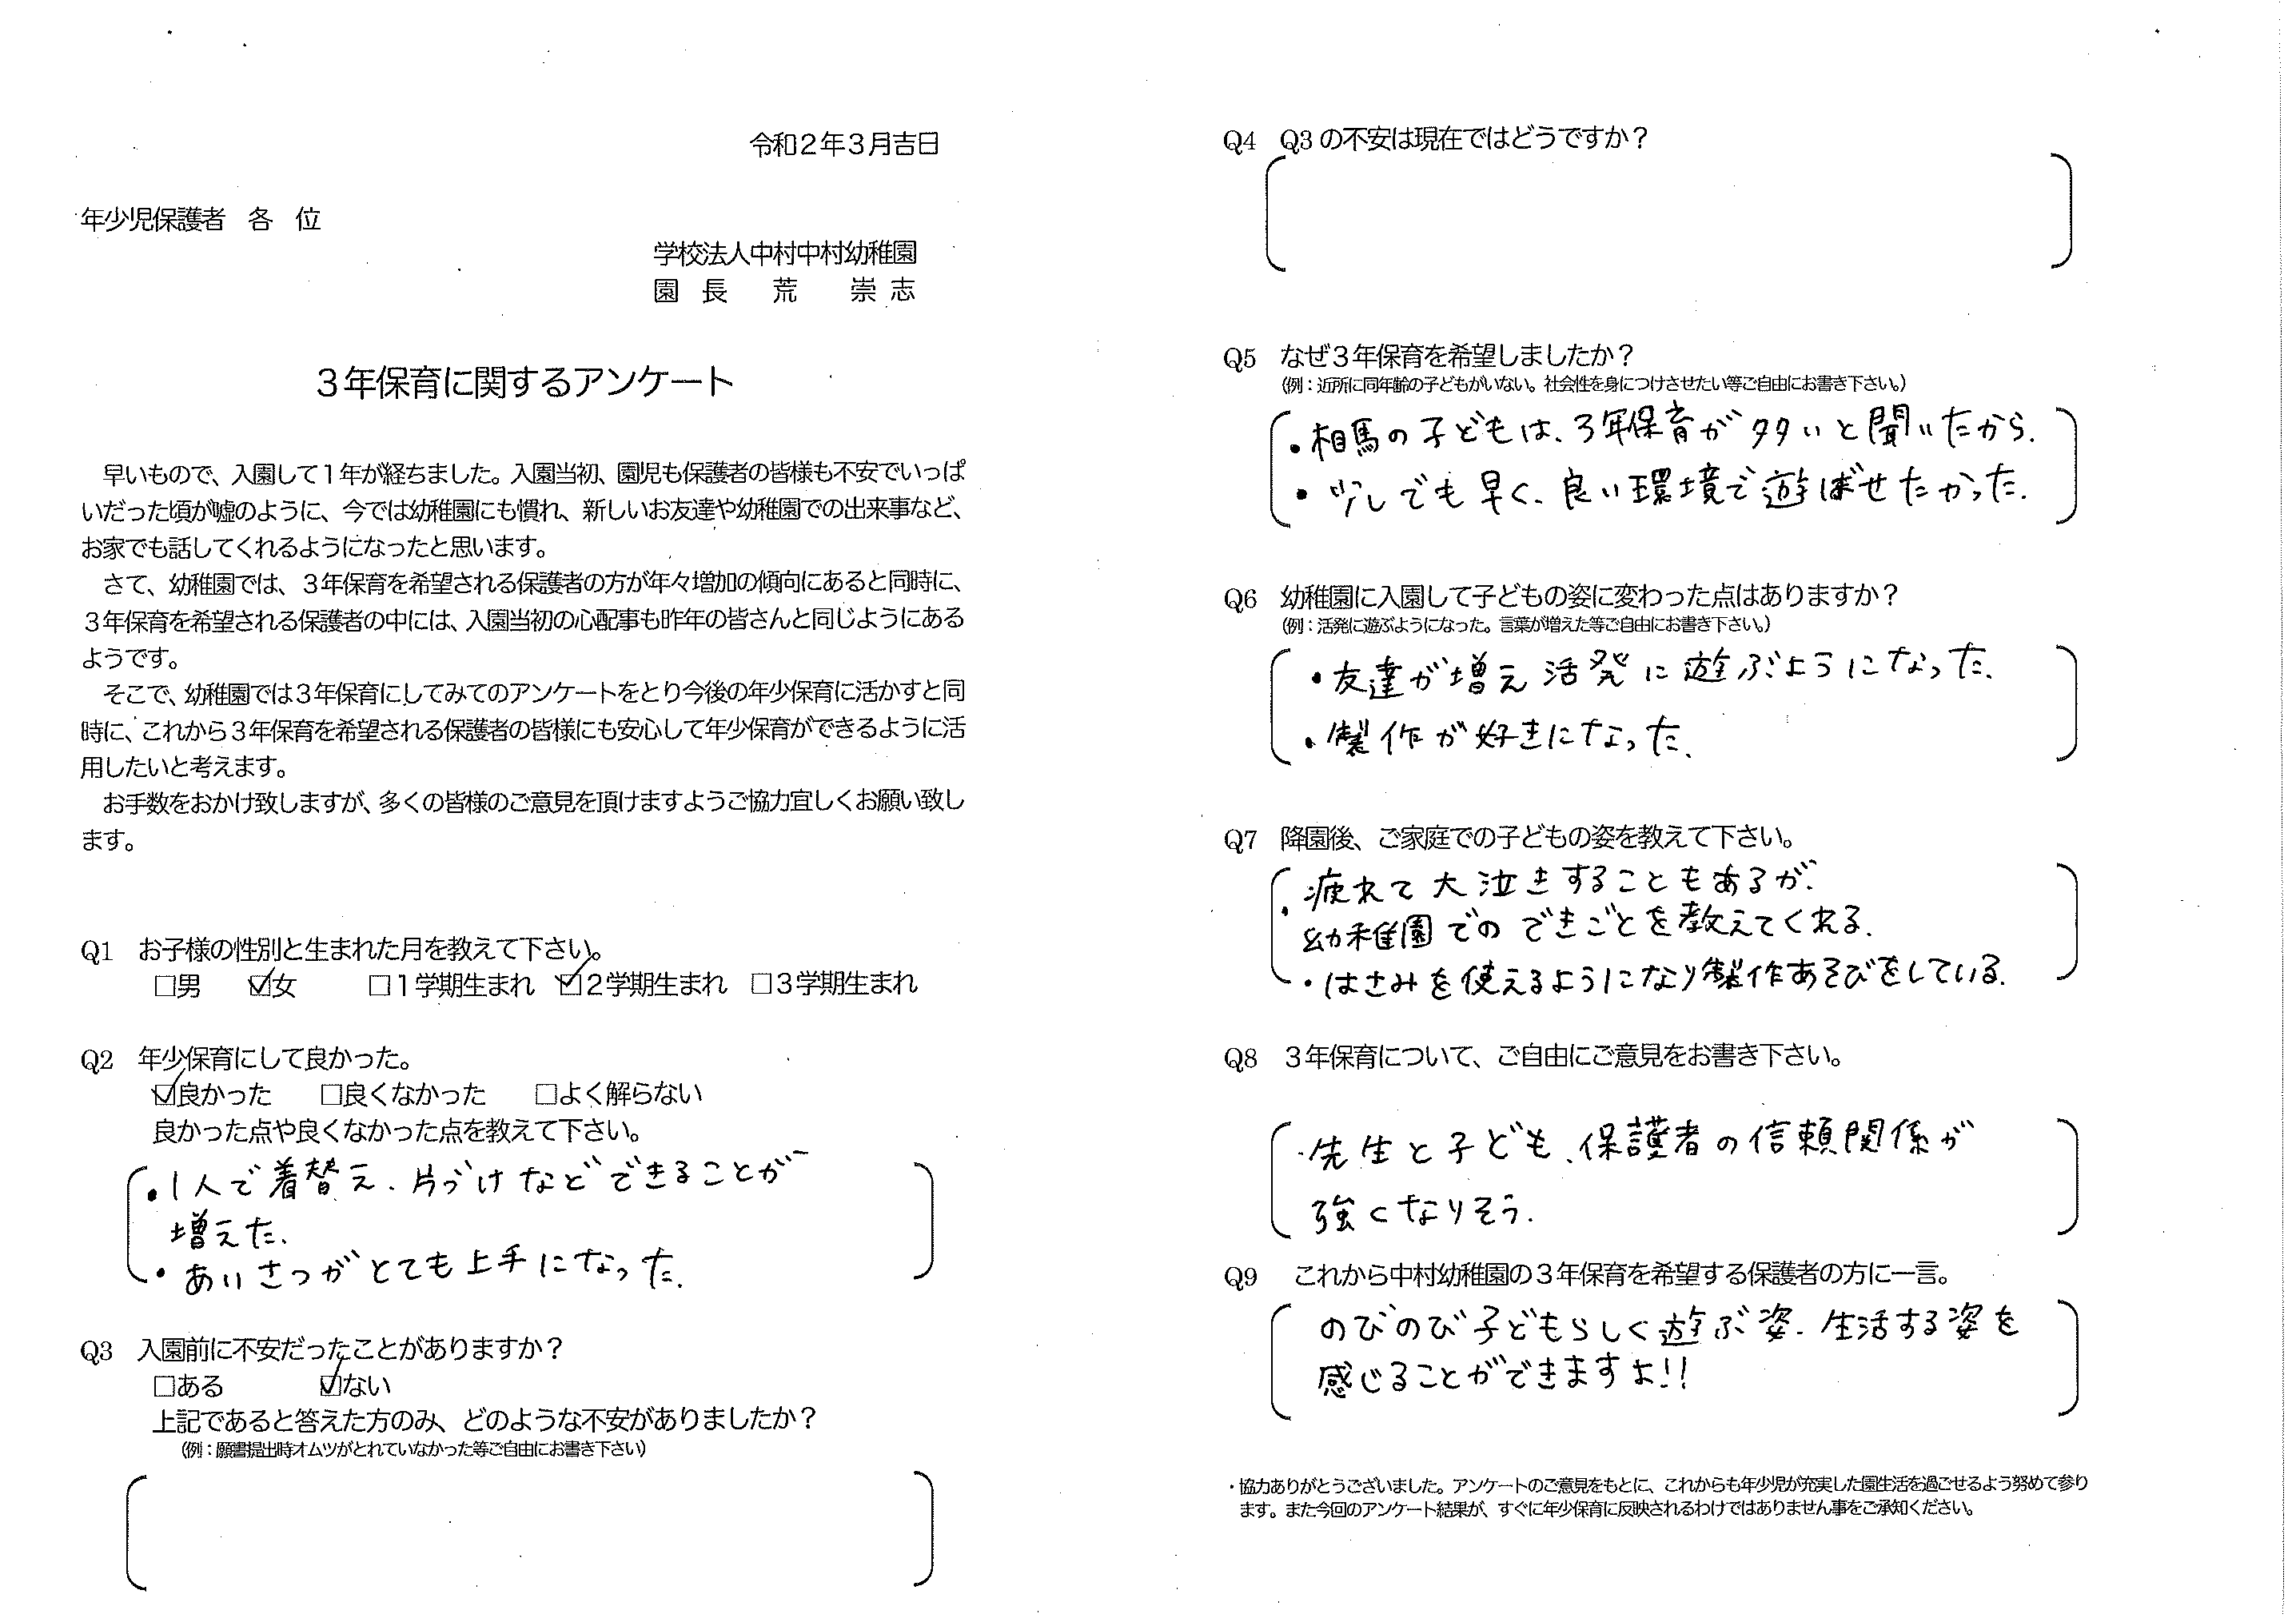 令和２年３月吉日
年少児保護者　各　位
学校法人中村中村幼稚園
園　長　　荒　　崇　志
３年保育に関するアンケート
早いもので、入園して１年が経ちました。入園当初、園児も保護者の皆様も不安でいっぱ
いだった頃が嘘のように、今では幼稚園にも慣れ、新しいお友達や幼稚園での出来事など、
お家でも話してくれるようになったと思います。
さて、幼稚園では、３年保育を希望される保護者の方が年々増加の傾向にあると同時に、
３年保育を希望される保護者の中には、入園当初の心配事も昨年の皆さんと同じようにある
ようです。
そこで、幼稚園では３年保育にしてみてのアンケートをとり今後の年少保育に活かすと同
時に、これから３年保育を希望される保護者の皆様にも安心して年少保育ができるように活
用したいと考えます。
お手数をおかけ致しますが、多くの皆様のご意見を頂けますようご協力宜しくお願い致し
ます。
Q1　お子様の性別と生まれた月を教えて下さい。
□男　☑女　□１学期生まれ　☑２学期生まれ　□３学期生まれ
Q2　年少保育にして良かった。
☑良かった　□良くなかった　□よく解らない
良かった点や良くなかった点を教えて下さい。
・1人で着替え、片づけなどできることが
増えた。
・あいさつがとても上手になった。
Q3　入園前に不安だったことがありますか？
□ある　☑ない
上記であると答えた方のみ、どのような不安がありましたか？
（例：願書提出時オムツがとれていなかった等ご自由にお書き下さい）
Q4　Q3の不安は現在ではどうですか？
Q5　なぜ３年保育を希望しましたか？
（例：近所に同年齢の子どもがいない。社会性を身につけさせたい等ご自由にお書き下さい。）
・相馬の子どもは、３年保育が多いと聞いたから。
・少しでも早く、良い環境で遊ばせたかった。
Q6　幼稚園に入園して子どもの姿に変わった点はありますか？
（例：活発に遊ぶようになった。言葉が増えた等ご自由にお書き下さい。）
・友達が増え活発に遊ぶようになった。
・製作が好きになった。
Q7　降園後、ご家庭での子どもの姿を教えて下さい。
・疲れて大泣きすることもあるが、
幼稚園でのできごとを教えてくれる。
・はさみを使えるようになり製作あそびをしている。
Q8　３年保育について、ご自由にご意見をお書き下さい。
・先生と子ども、保護者の信頼関係が
強くなりそう。
Q9　これから中村幼稚園の３年保育を希望する保護者の方に一言。
のびのび子どもらしく遊ぶ姿、生活する姿を
感じることができますよ!!
・協力ありがとうございました。アンケートのご意見をもとに、これからも年少児が充実した園生活を過ごせるよう努めて参り
ます。また今回のアンケート結果が、すぐに年少保育に反映されるわけではありません事をご承知ください。